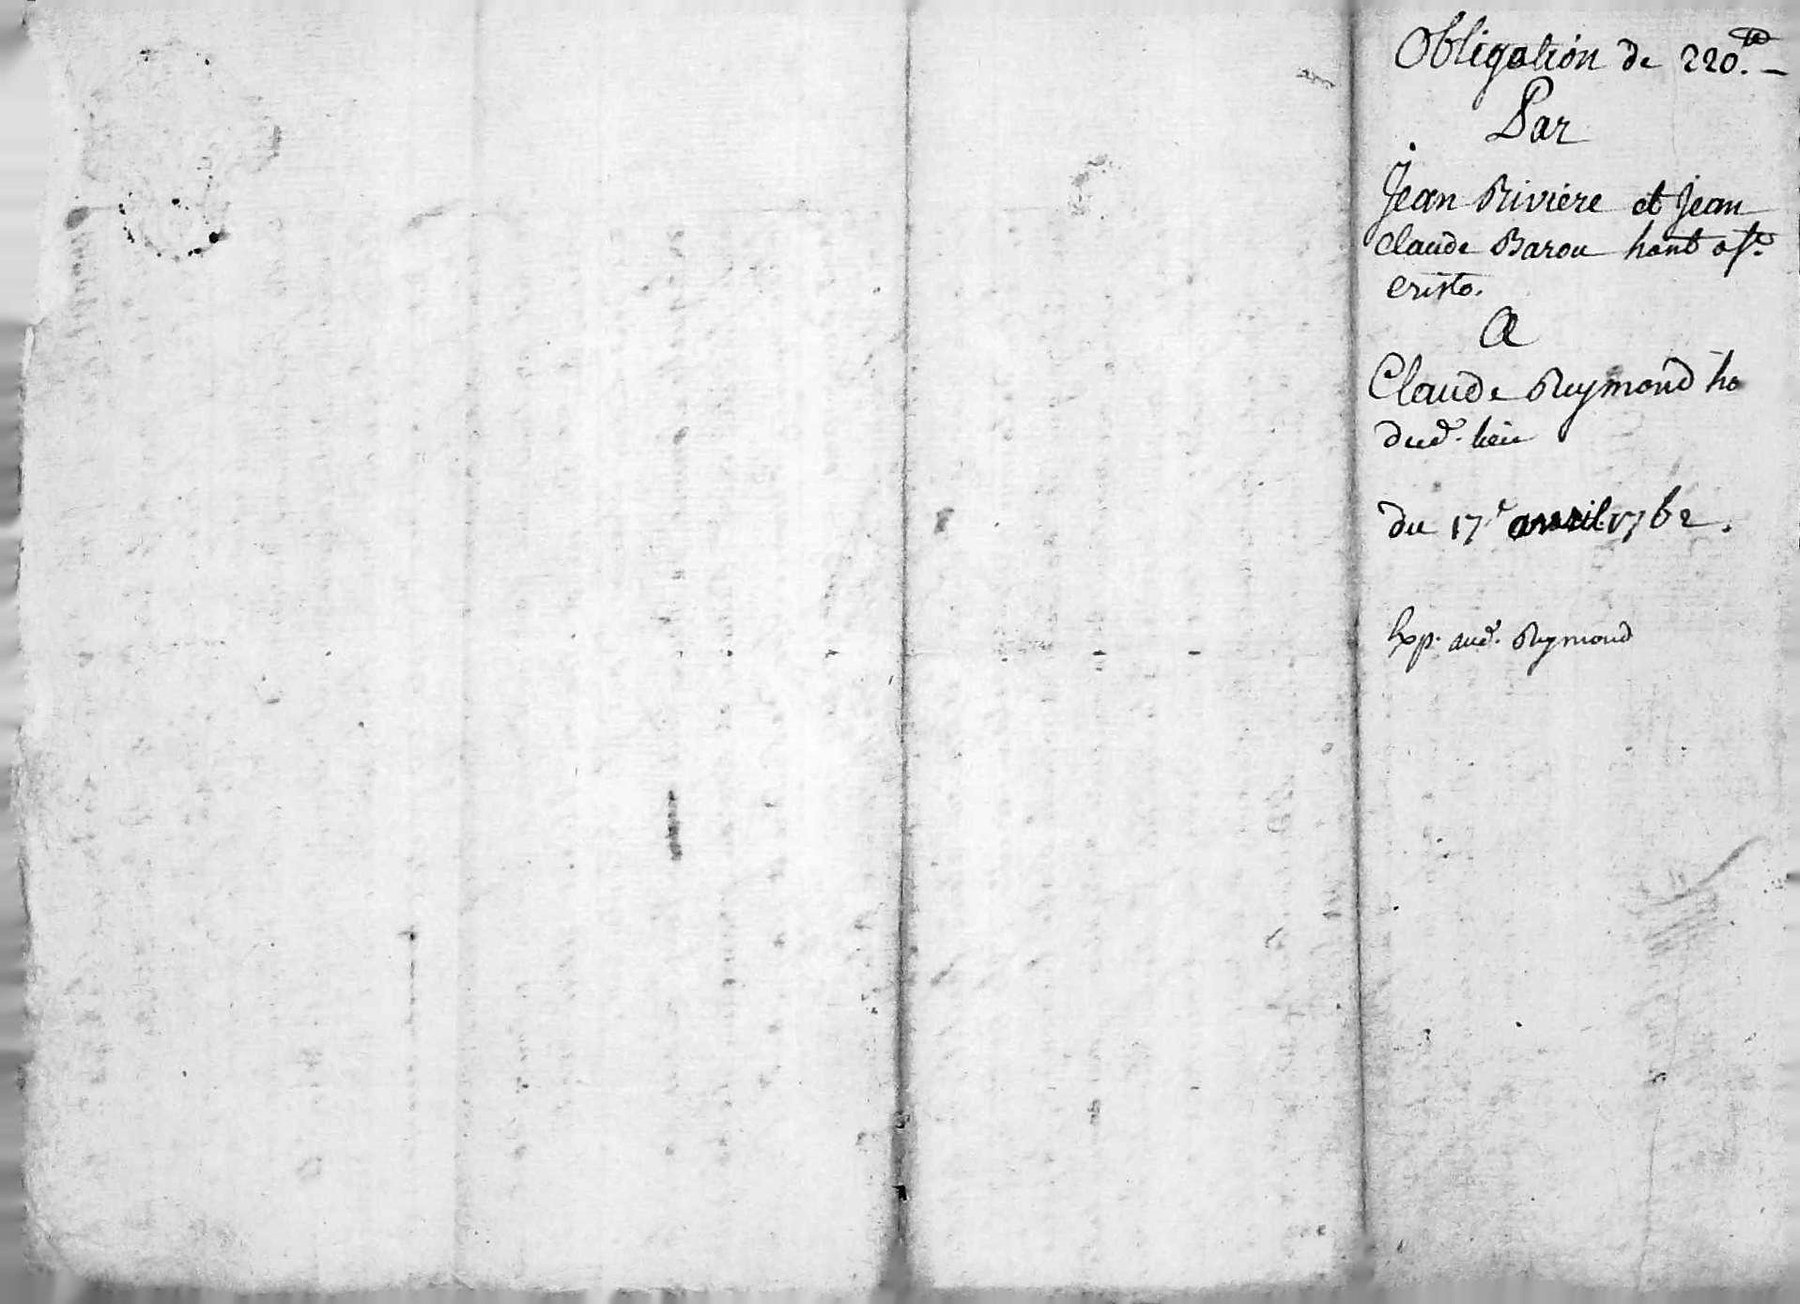 Obligation de 220.tt –
Par
Jean Riviere et Jean
Claude Barou hant
Cristo.
A
Claude Reymond ho
dud. lieu
du 17.e avril 1762.
Exp. aud. Reymond